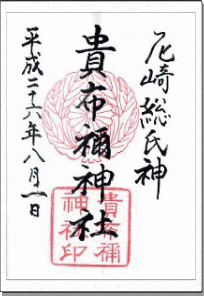 尼崎総氏神
貴布禰神社
平成二十六年八月一日
貴布禰
神社印